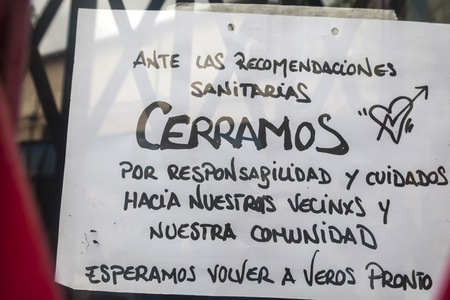 ANTE LAS RECOMENDACIONES
SANITARIAS
CERRAMOS
POR RESPONSABILIDAD Y CUIDADOS
HACIA NUESTRXS VECINXS Y
NUESTRA COMUNIDAD
ESPERAMOS VOLVER A VEROS PRONTO